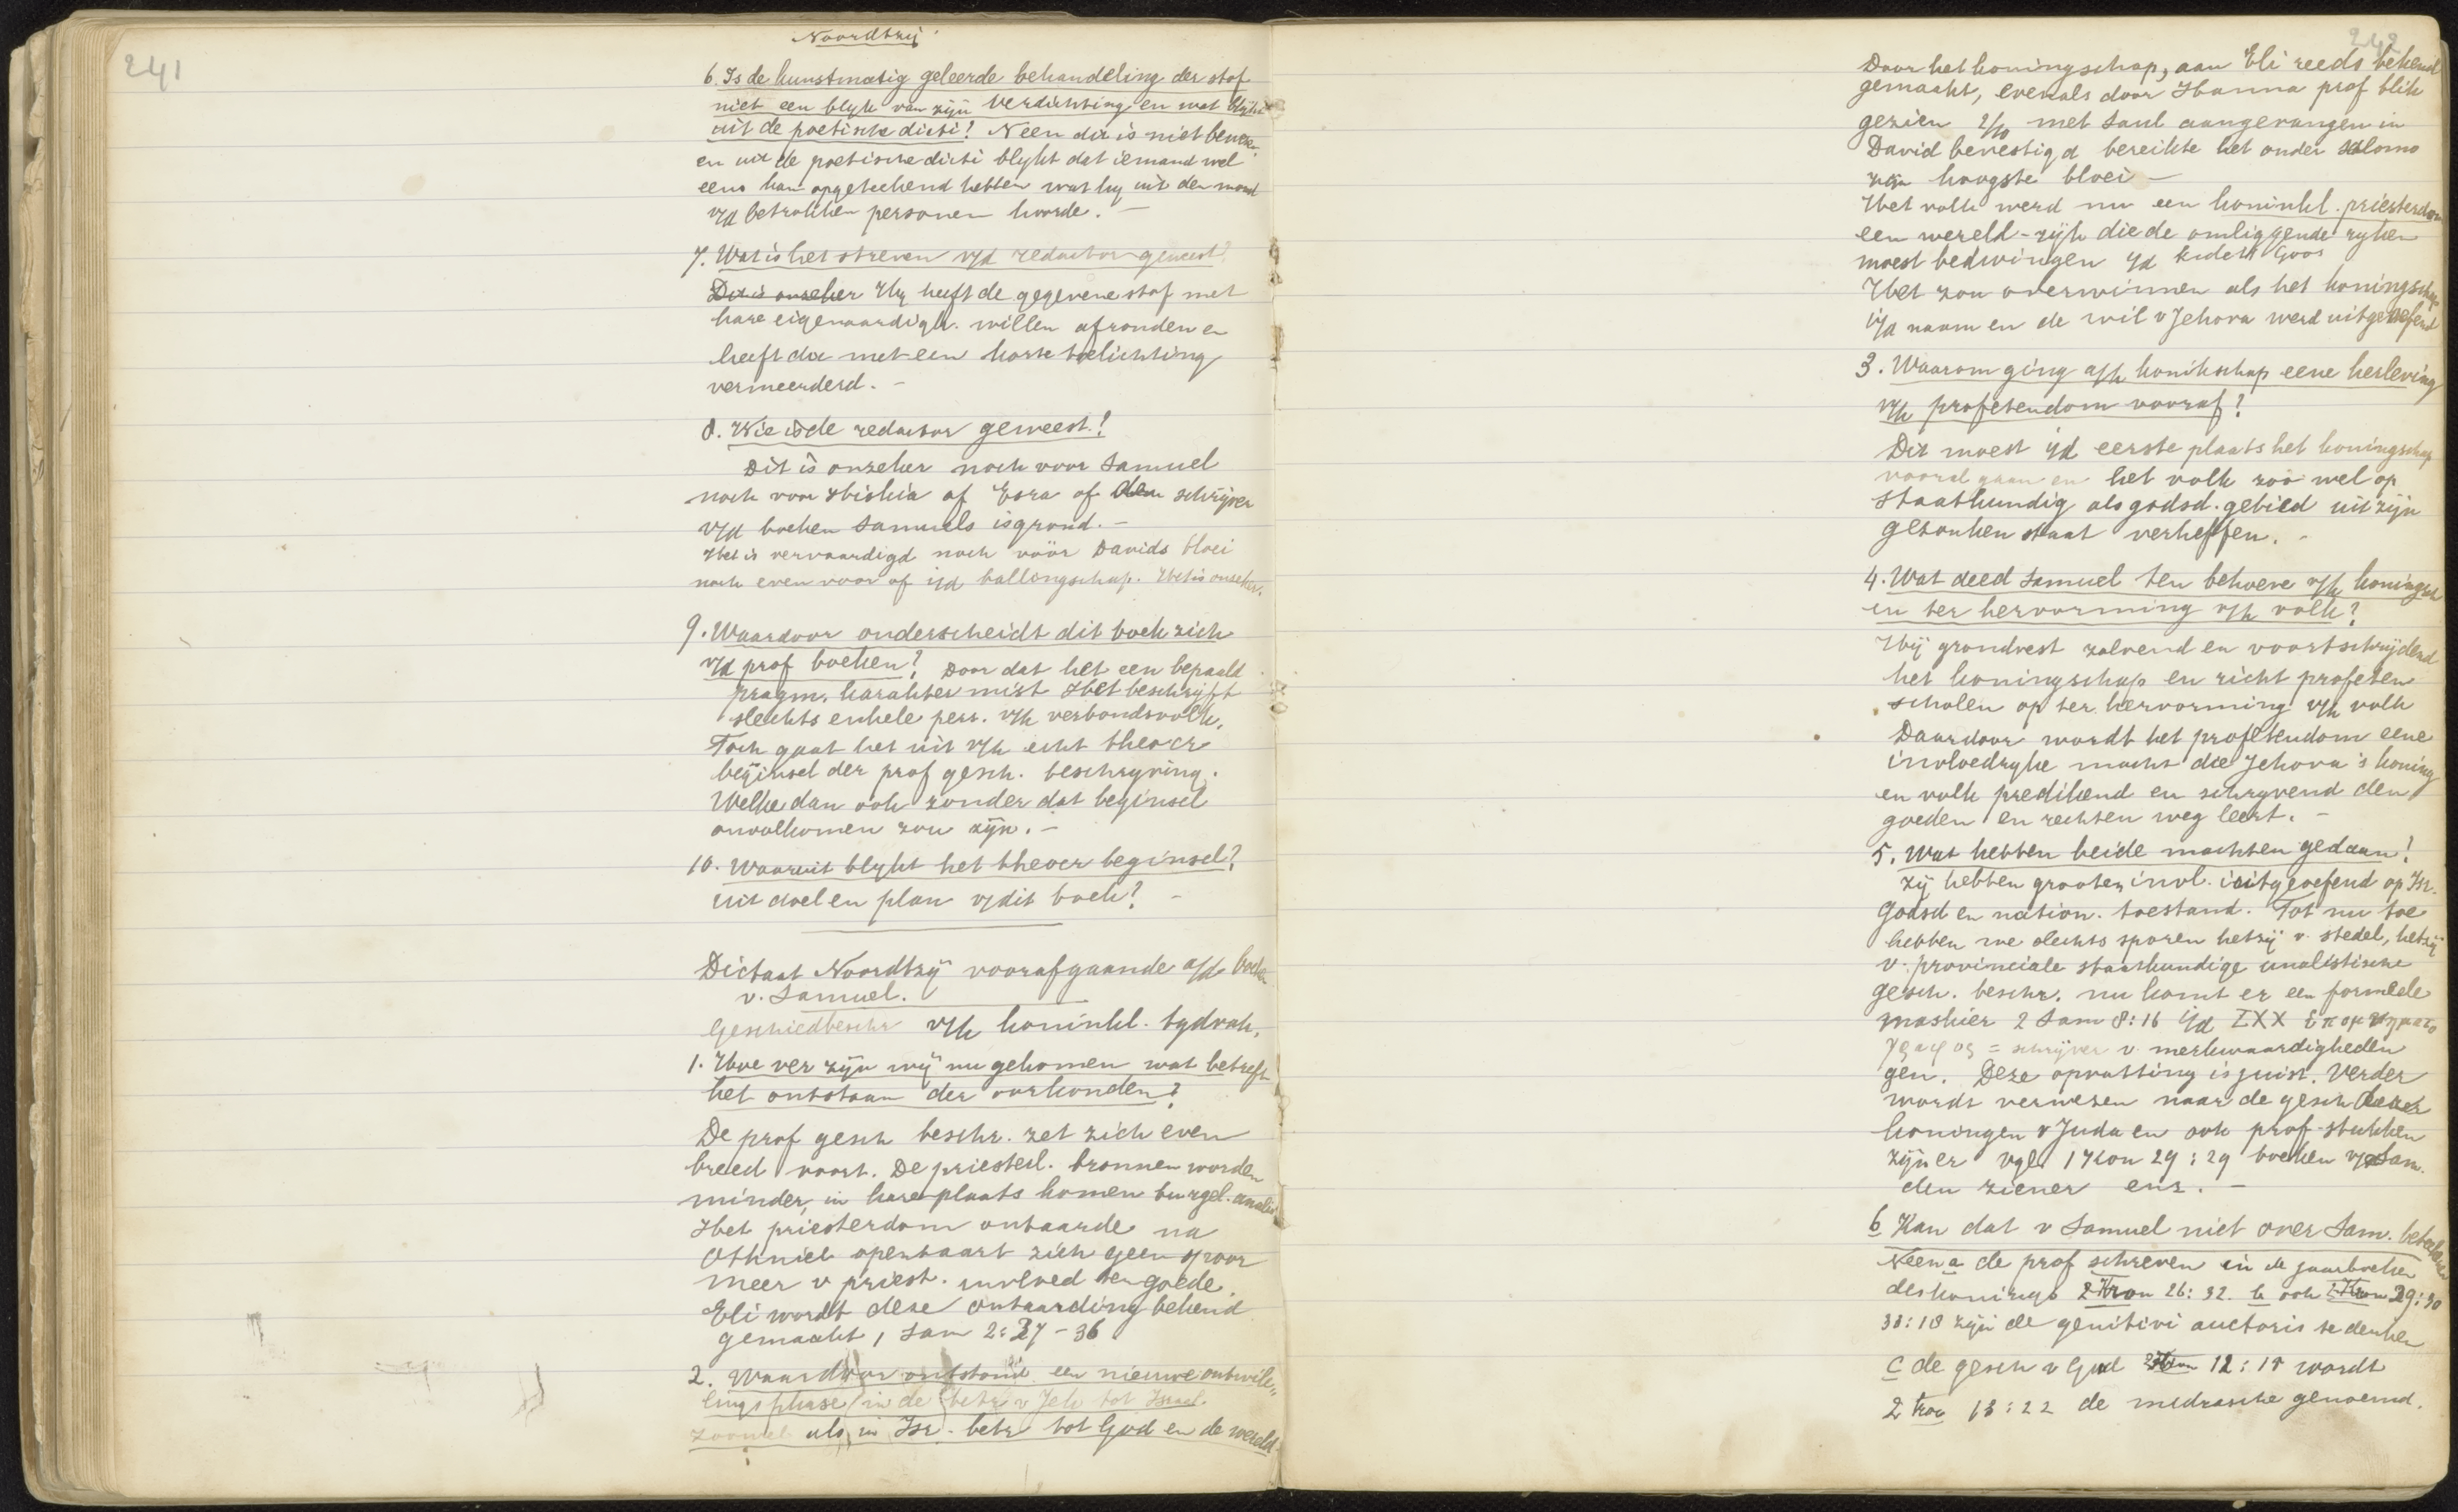 241
Noordtzij
6. Is de kunstmatig geleerde behandeling der stof
niet een blyk van zijn verdichting en wat blykt
uit de poetische dictie? Neen dit is niet bewezen
en uit de poetische dictie blykt dat iemand wel
eens kan opgeteekend hebben wat hy uit den mond
v/d betrokken personen hoorde. —
7. Wat is het streven v/d redactor geweest?
Dit is onzeker Hy heeft de gegevene stof met
hare eigenaardigh. willen afronden en
heeft die met een korte toelichting
vermeerderd. —
8. Wie is de redactor geweest?
Dit is onzeker noch voor Samuel
noch voor Hiskia of Esra of den schrijver
v/d boeken Samuels is grond. —
Het is vervaardigd noch vóór Davids bloei
noch even voor of i/d ballingschap. Het is onzeker.
9. Waardoor onderscheidt dit boek zich
v/d prof boeken? Door dat het een bepaald
pragm. karakter mist Het beschrijft
slechts enkele pers. v/h verbondsvolk.
Toch gaat het uit v/h echt theocr
beginsel der prof gesch. beschryving.
Welke dan ook zonder dat beginsel
onvolkomen zou zijn. —
10. Waaruit blykt het theocr beginsel?
uit doel en plan v/dit boek? —
Dictaat Noordtzij voorafgaande a/d boeken
v. Samuel.
Geschiedbeschr v/h koninkl. tydvak.
1. Hoe ver zijn wij nu gekomen wat betreft
het ontstaan der oorkonden?
De prof gesch beschr. zet zich even
breed voort. De priesterl. bronnen worden
minder, in hare plaats komen burgel. analis
Het priesterdom ontaarde na
Othniel openbaart zich geen spoor
meer v priest. invloed ten goede.
Eli wordt deze ontaarding bekend
gemaakt 1 Sam 2: 27 - 36
2. Waardoor ontstond een nieuwe ontwik-
lings phase in de betr v Jeh tot Israel.
zoowel als in Isr. betr tot God en de wereld.
242
Door het koningschap, aan Eli reeds bekend
gemaakt, evenals door Hanna prof blik
gezien 2/10 met Saul aangevangen in
David bevestigd bereikte het onder Salomo
zijn hoogste bloei —
Het volk werd nu een koninkl. priesterdom
een wereld-rijk die de omliggende ryken
moest bedwingen
Het zou overwinnen als het koningschap
i/d naam en de wil v Jehova werd uitgeoefend
3. Waarom ging a/h konikschap eene herleving
v/h profetendom vooraf?
Dit moest i/d eerste plaats het koningschap
voorafgaan en het volk zoo wel op
staatkundig als godsd. gebied uit zijn
gezonken staat verheffen. —
4. Wat deed Samuel ten behoeve v/h koningsch
en ter hervorming v/h volk?
Hij grondvest zalvend en voortschrijdend
het koningschap en richt profeten
scholen op ter hervorming v/h volk
Daardoor wordt het profetendom eene
invloedryke macht die Jehova's koning
en volk predikend en schryvend den
goeden en rechten weg leert. —
5. Wat hebben beide machten gedaan?
Zij hebben grooten invl. uitgeoefend op Isr.
Godsd en nation. toestand. Tot nu toe
hebben we slechts sporen hetzij v. stedel, hetzij
v. provinciale staatkundige analistische
gesch. beschr. nu komt er een formeele
maskier 2 Sam 8:16 i/d LXX επομνηματο
γραφος = schrijver v. merkwaardigheden
gen. Deze opvatting is juist. Verder
wordt verwezen naar de gesch dezer
koningen v Juda en ook prof-stukken
zijn er vgl. 1 Kon 29:29 boeken v/Sam.
den ziener enz. —
6 Kan dat v Samuel niet over Sam. beteekenen
Neen a de prof schreven in de jaarboeken
des konings 2 Kron 26:32. b ook 1 Kron 29:30
33:18 zijn de genitivi auctoris te denken
c de gesch v God 2 Kron 12:15 wordt
2 Kron 13:22 de midrasche genoemd.